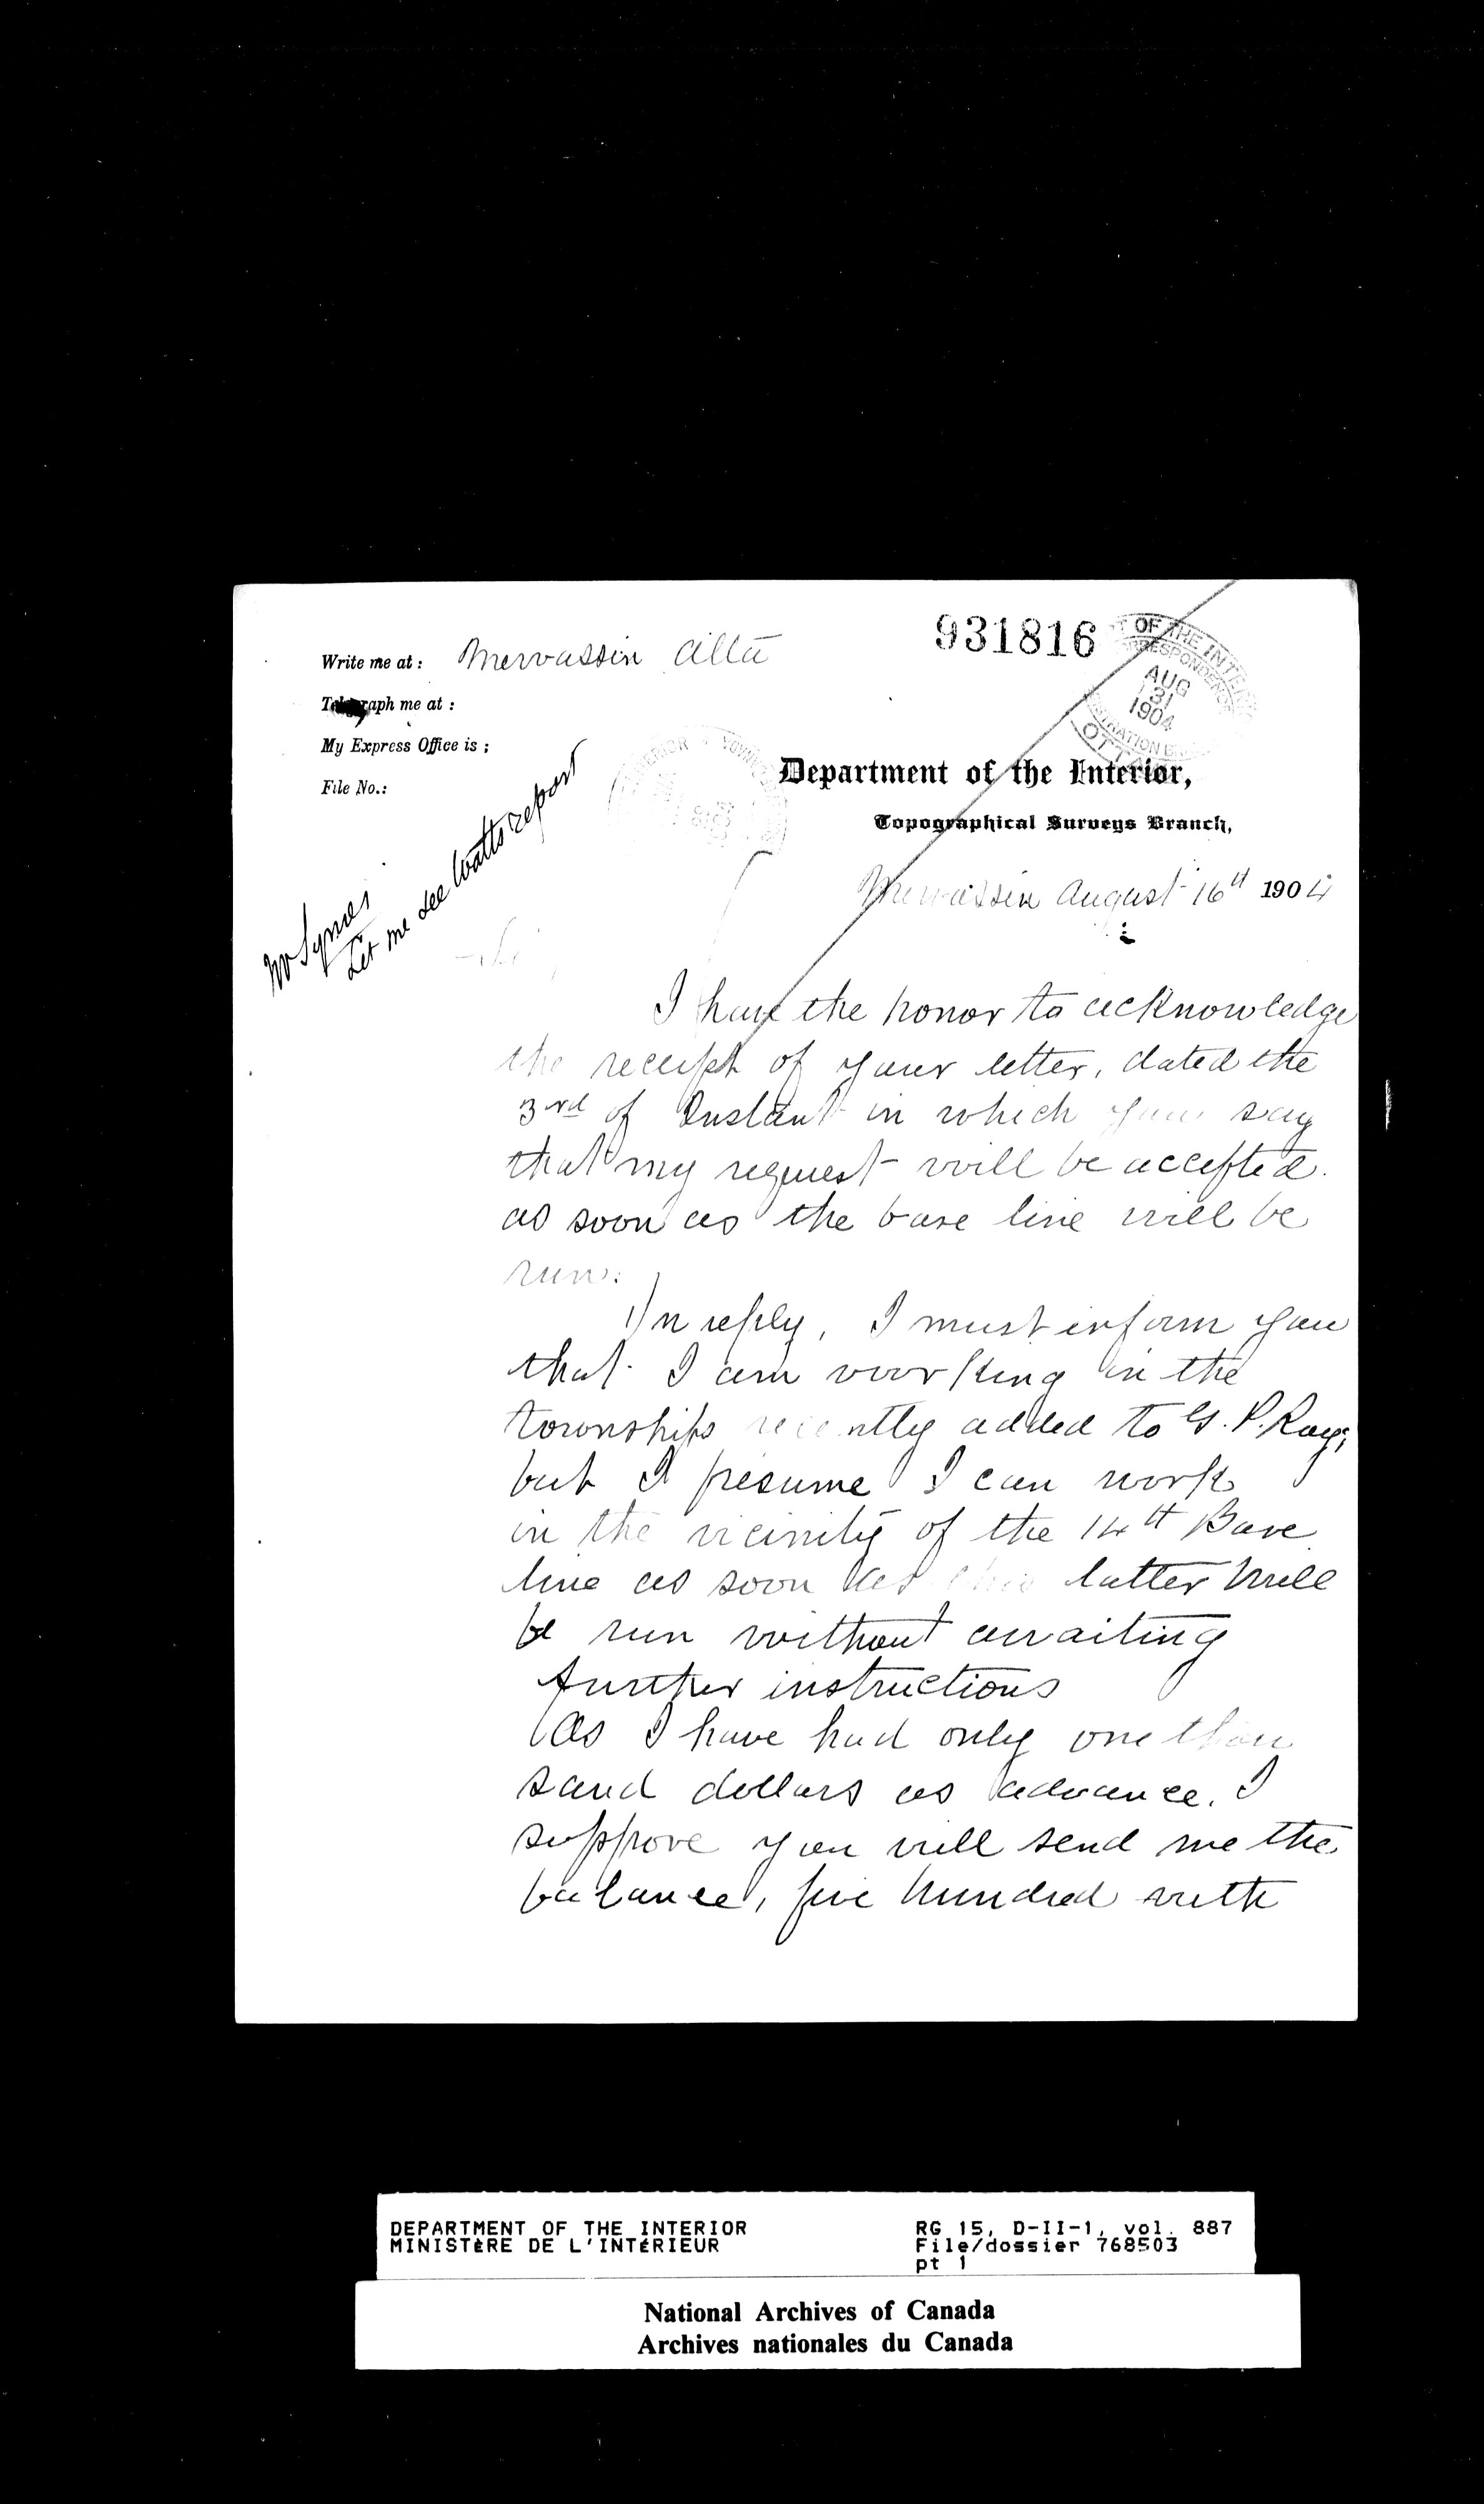 931816
Write me at: Mewassin Alta
Telegraph me at:
My Express Office is;
File No.:
T OF THE INTERIOR
CORRESPONDENCE
AUG
31
1904
OTTAWA
Department of the Interior,
Topographical Surveys Branch,
Mr Symes
Let me see Watts report
Mewassin August 16th 1904
Sir,
I have the honor to acknowledge
the receipt of your letter, dated the
3rd of Instant in which you say
that my request will be accepted
as soon as the base line will be
run.
In reply, I must inform you
that I am working in the
townships recently added to G. P. Roy,
but I presume I can work
in the vicinity of the 14th Base
line as soon as this latter will
be run without awaiting
further instructions
As I have had only one thou
sand dollars as advance. I
suppose you will send me the
balance, five hundred with
DEPARTMENT OF THE INTERIOR
MINISTÈRE DE L'INTÉRIEUR
RG 15, D-II-1, vol. 887
File/dossier 768503
pt 1
National Archives of Canada
Archives nationales du Canada